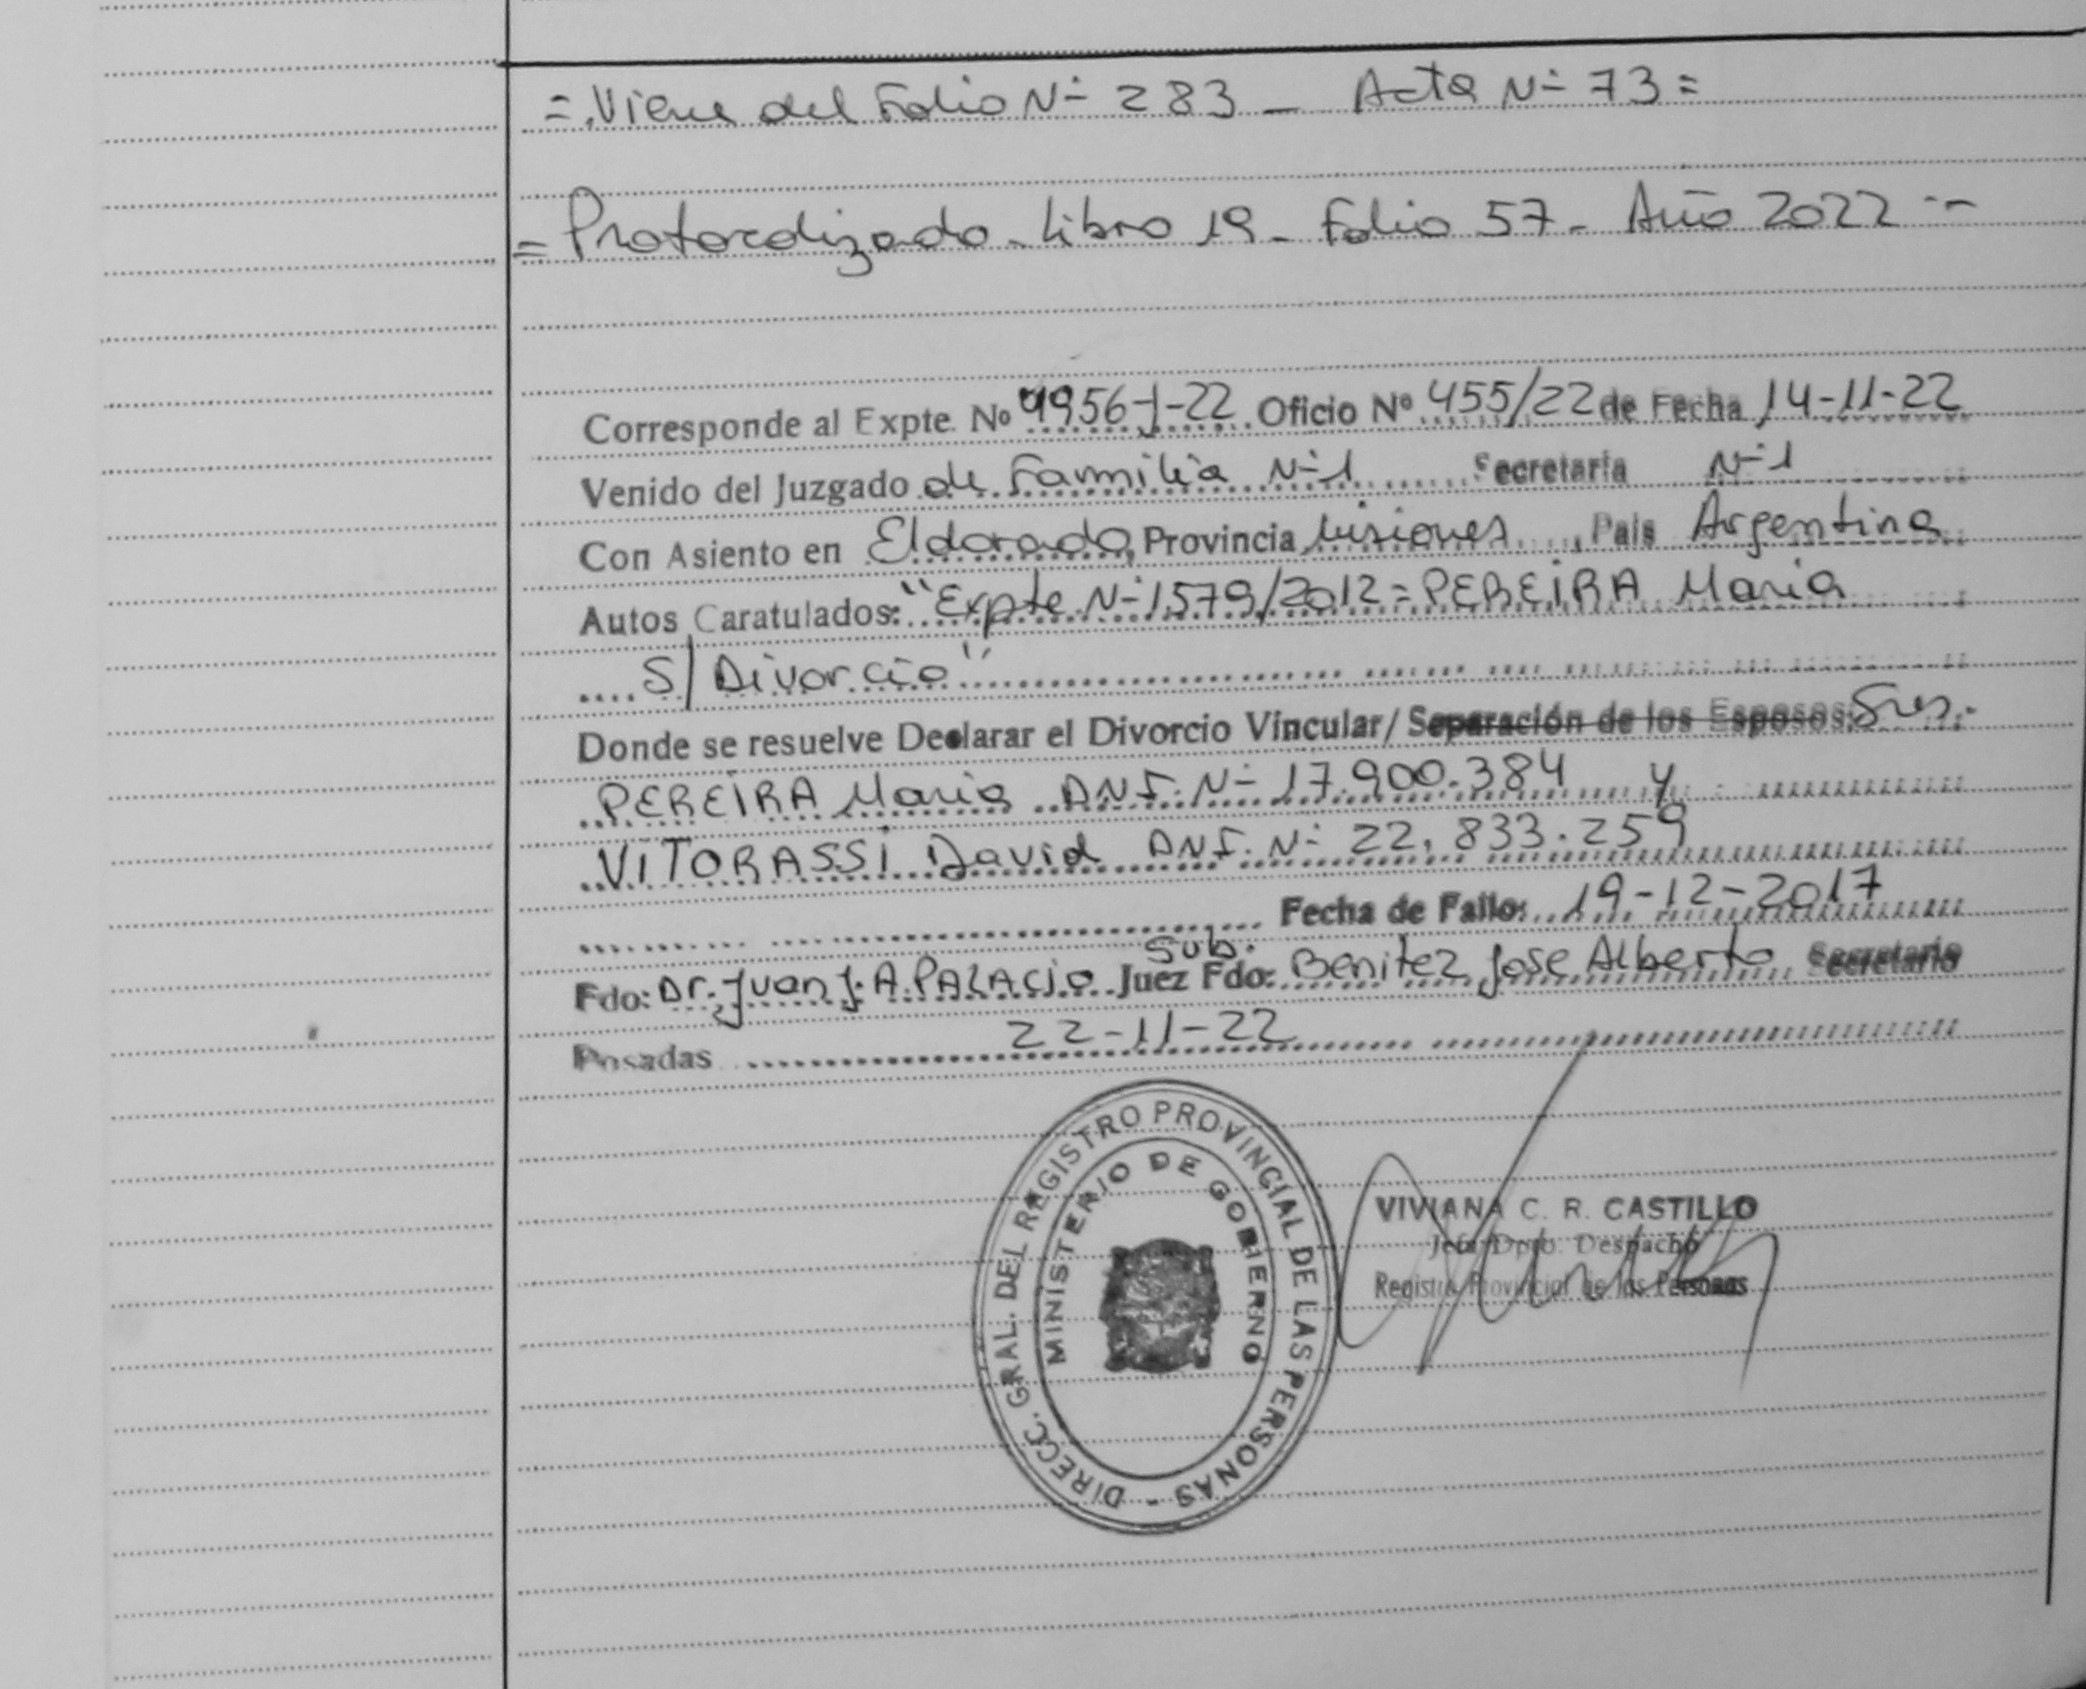 = Viene del Folio Nº 283 _ Acta Nº 73 =
= Protocolizado - Libro 19 - Folio 57 - Año 2022 =
Corresponde al Expte. Nº 9956-J-22 Oficio Nº 455/22 de Fecha 14-11-22
Venido del Juzgado de Familia Nº 1 Secretaria Nº 1
Con Asiento en Eldorado, Provincia Misiones, Pais Argentina
Autos Caratulados: "Expte Nº 1579/2012 = PEREIRA Maria
S/ Divorcio"
Donde se resuelve Declarar el Divorcio Vincular/ Separación de los Esposos: Sres.-
PEREIRA Maria DNI. Nº 17.900.384 y
VITORASSI David DNI. Nº 22.833.259
Fecha de Fallo: 19-12-2017
Sub.
Fdo: Dr. Juan J. A. PALACIO Juez Fdo: Benitez Jose Alberto Secretario
Posadas 22-11-22
DIRECC. GRAL. DEL REGISTRO PROVINCIAL DE LAS PERSONAS -
MINISTERIO DE GOBIERNO
VIVIANA C. R. CASTILLO
Jefa Dpto. Despacho
Registro Provincial de las Personas